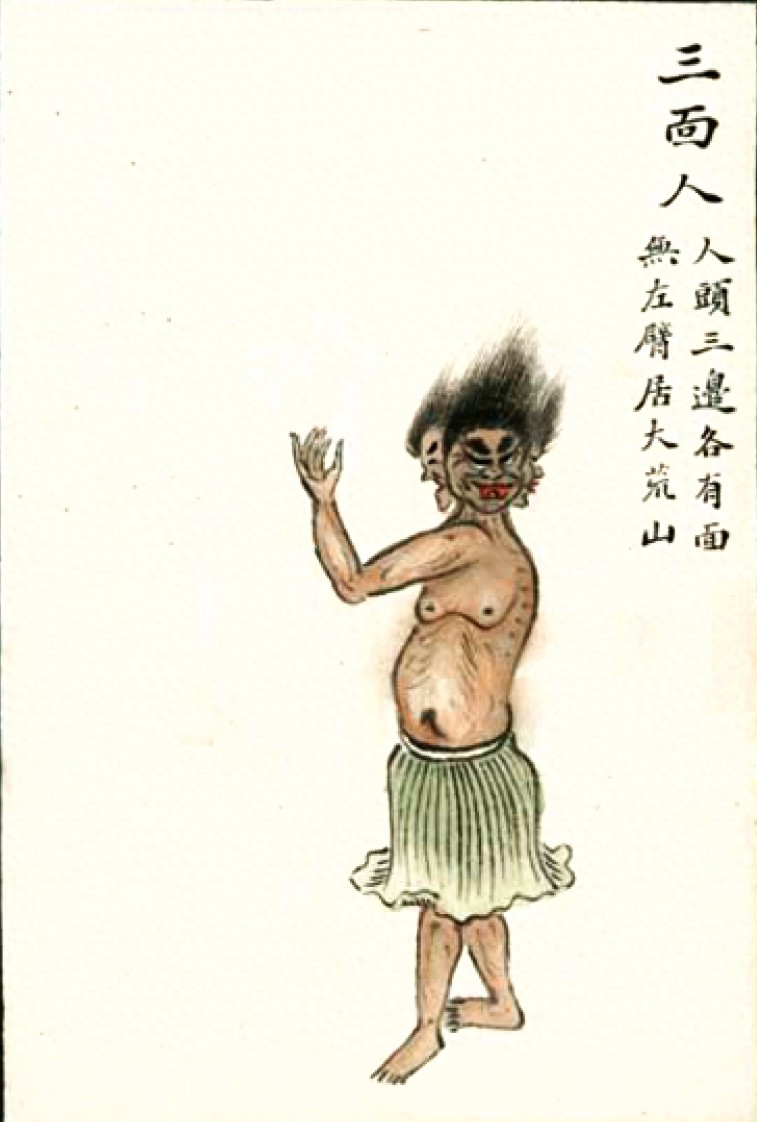 三面人
人頭三邊各有面
無左臂居大荒山